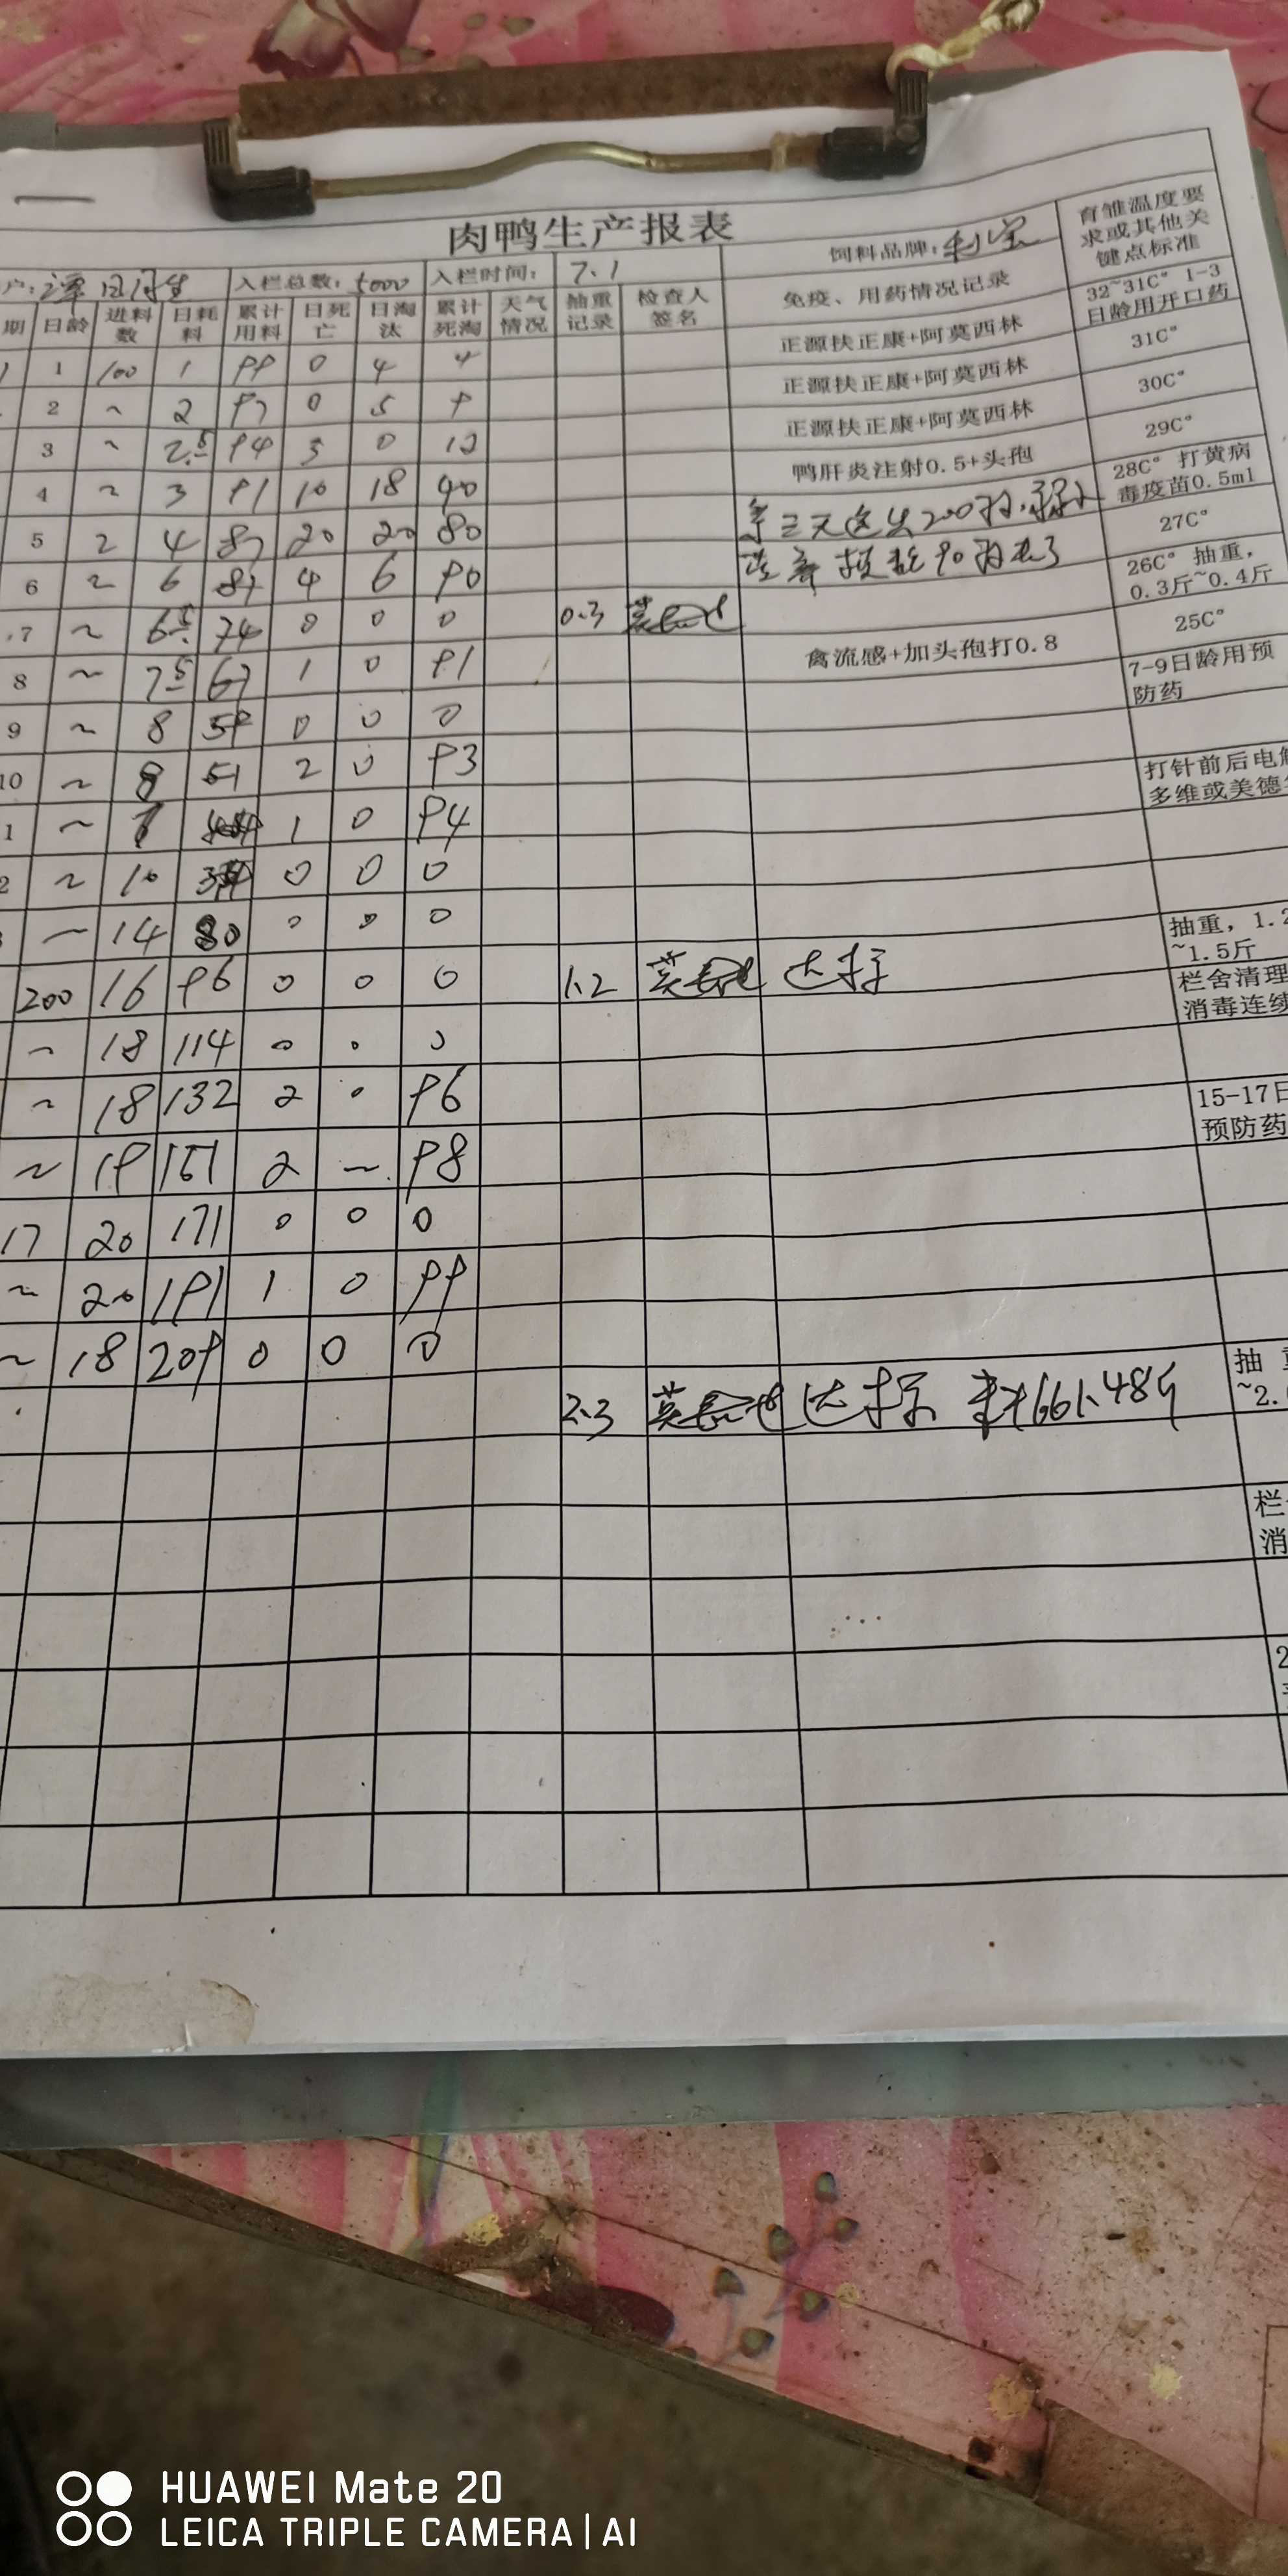 肉鸭生产报表
户: 入栏总数: 5000 入栏时间: 7.1 饲料品牌: 育雏温度要求或其他关键点标准
期 日龄 进料数 日耗料 累计用料 日死亡 日淘汰 累计死淘 天气情况 抽重记录 检查人签名 免疫、用药情况记录 32~31C° 1-3日龄用开口药
1 1 100 1 99 0 4 4 正源扶正康+阿莫西林 31C°
2 ~ 2 97 0 5 9 正源扶正康+阿莫西林 30C°
3 ~ 2.5 94 3 0 12 正源扶正康+阿莫西林 29C°
4 ~ 3 91 10 18 40 鸭肝炎注射0.5+头孢 28C° 打黄病毒疫苗0.5ml
5 ~ 4 87 20 20 80 27C°
6 ~ 6 81 4 6 90 26C° 抽重，0.3斤~0.4斤
.7 ~ 6.5 74 0 0 0 0.3 25C°
8 ~ 7.5 67 1 0 91 禽流感+加头孢打0.8 7-9日龄用预防药
9 ~ 8 59 0 0 0
10 ~ 8 51 2 0 93 打针前后电解多维或美德
1 ~ 1 0 94
2 ~ 10 0 0 0
~ 14 80 0 0 0 抽重，1.2~1.5斤
200 16 96 0 0 0 1.2 达标 栏舍清理消毒连续
~ 18 114 0 0 0
~ 18 132 2 0 96 15-17日预防药
~ 19 151 2 ~ 98
17 20 171 0 0 0
~ 20 191 1 0 99
~ 18 209 0 0 0 抽
2.3 达标 料661.48斤 ~2.
栏
消
2
HUAWEI Mate 20
LEICA TRIPLE CAMERA | AI